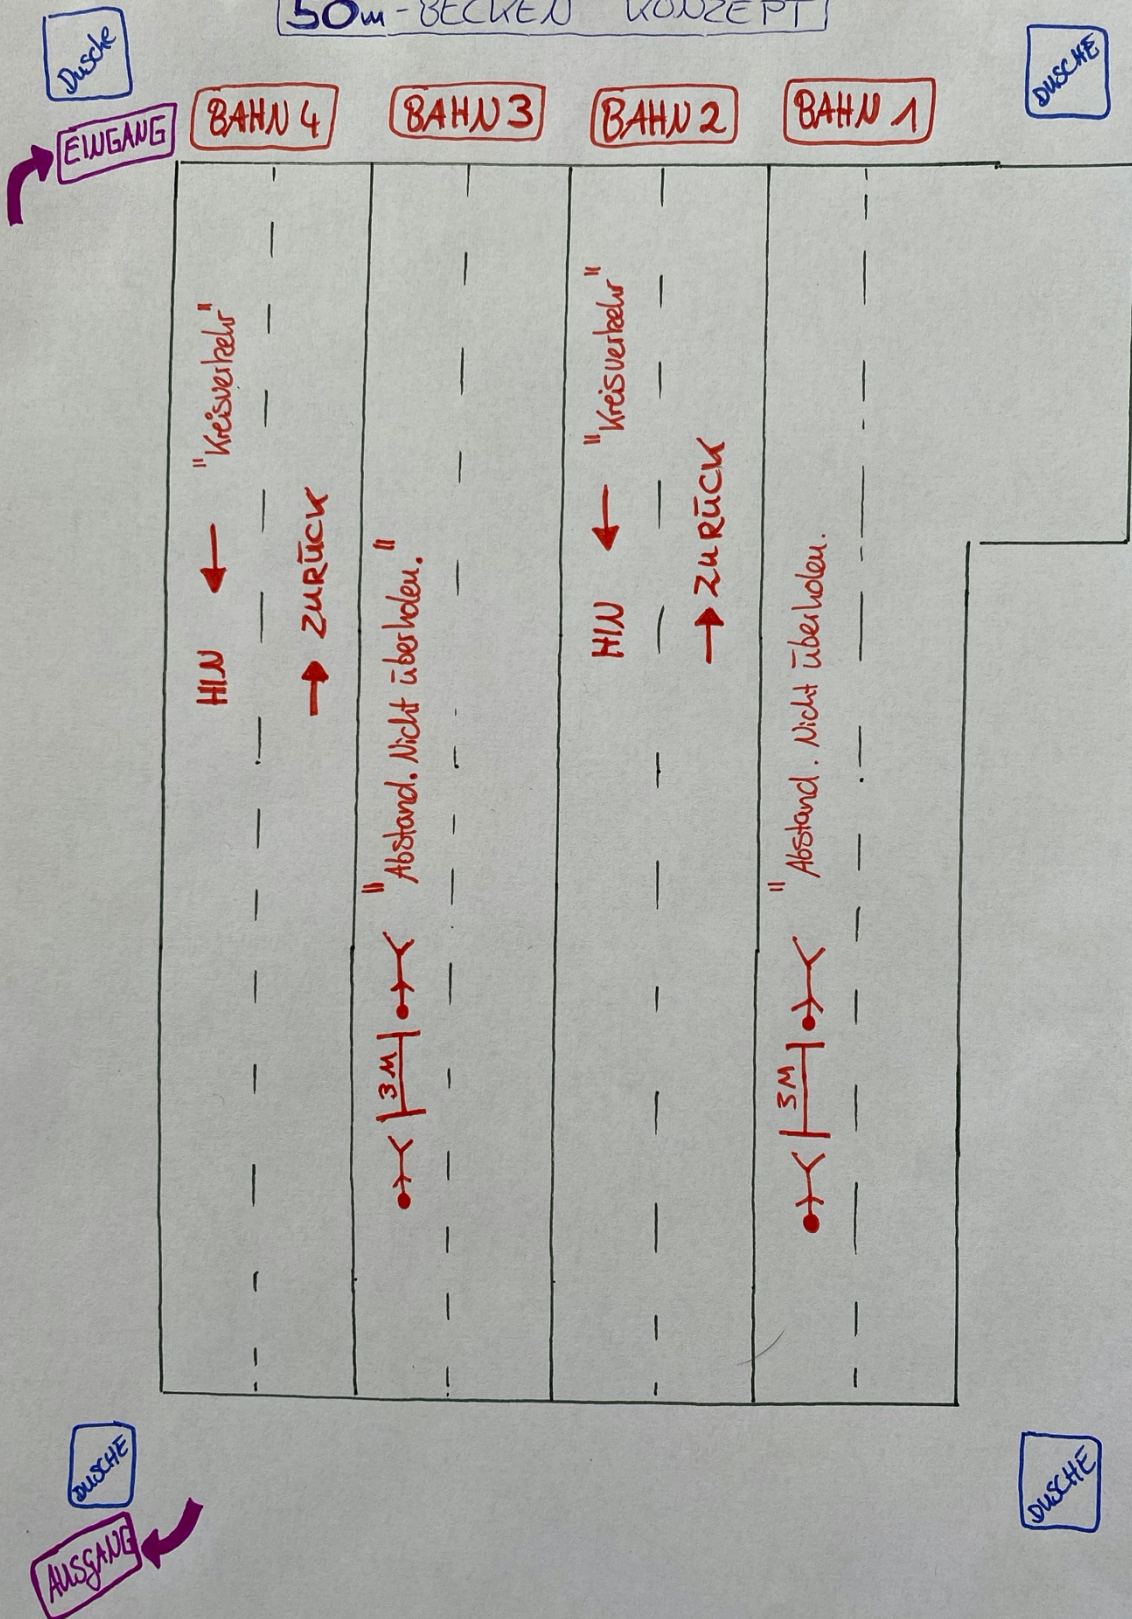 50m-BECKEN KONZEPT
Dusche
DUSCHE
EINGANG
BAHN 4
BAHN 3
BAHN 2
BAHN 1
"Kreisverkehr"
HIN
ZURÜCK
"Abstand. Nicht überholen."
3M
"Kreisverkehr"
HIN
ZURÜCK
"Abstand. Nicht überholen.
3M
DUSCHE
AUSGANG
DUSCHE